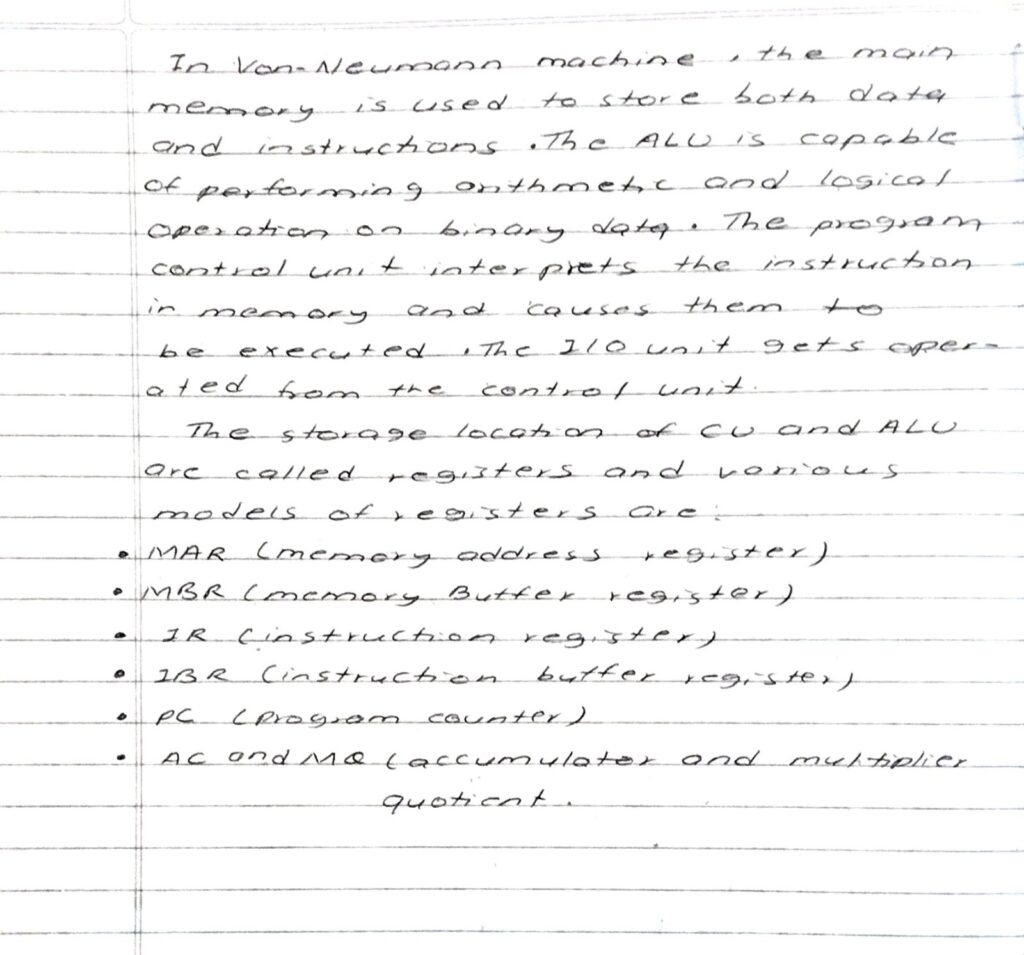 In Von-Neumann machine, the main
memory is used to store both data
and instructions. The ALU is capable
of performing arithmetic and logical
operation on binary data. The program
control unit interprets the instruction
in memory and causes them to
be executed. The I/O unit gets oper-
ated from the control unit.
The storage location of CU and ALU
are called registers and various
models of registers are:
• MAR (memory address register)
• MBR (memory Buffer register)
• IR (instruction register)
• IBR (instruction buffer register)
• PC (program counter)
• AC and MQ (accumulator and multiplier
quotient.